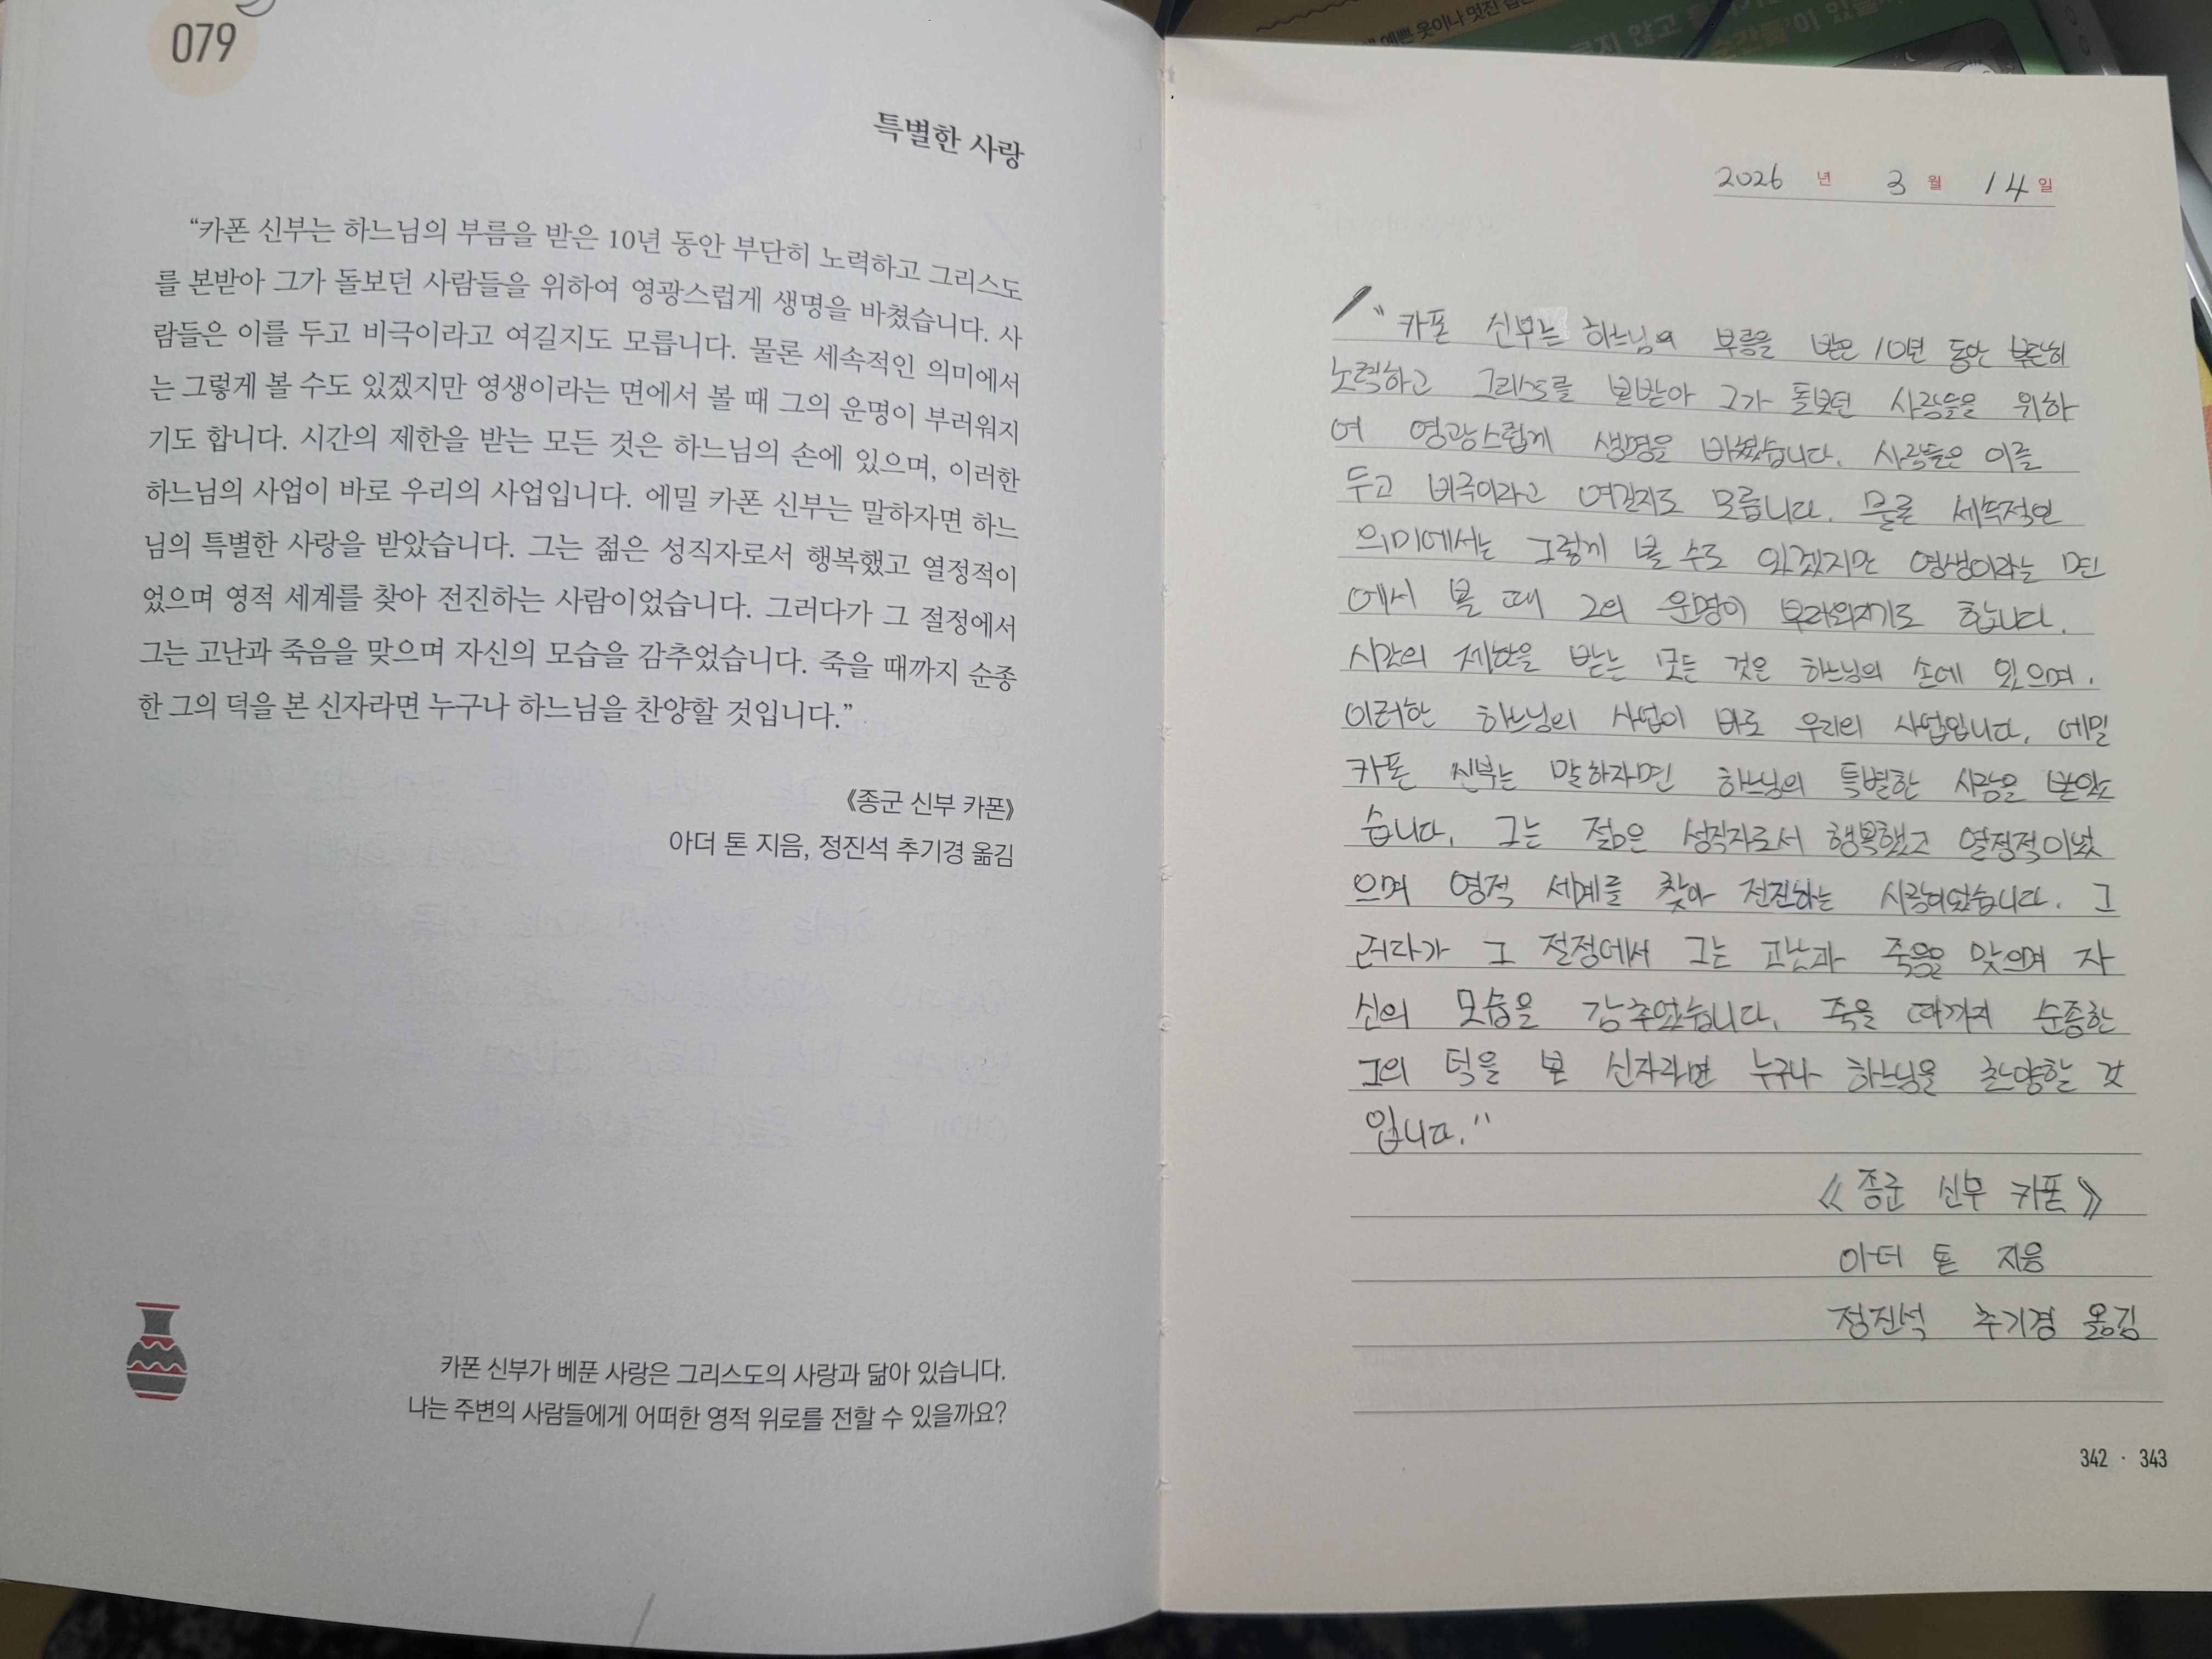 079
특별한 사랑
“카폰 신부는 하느님의 부름을 받은 10년 동안 부단히 노력하고 그리스도
를 본받아 그가 돌보던 사람들을 위하여 영광스럽게 생명을 바쳤습니다. 사
람들은 이를 두고 비극이라고 여길지도 모릅니다. 물론 세속적인 의미에서
는 그렇게 볼 수도 있겠지만 영생이라는 면에서 볼 때 그의 운명이 부러워지
기도 합니다. 시간의 제한을 받는 모든 것은 하느님의 손에 있으며, 이러한
하느님의 사업이 바로 우리의 사업입니다. 에밀 카폰 신부는 말하자면 하느
님의 특별한 사랑을 받았습니다. 그는 젊은 성직자로서 행복했고 열정적이
었으며 영적 세계를 찾아 전진하는 사람이었습니다. 그러다가 그 절정에서
그는 고난과 죽음을 맞으며 자신의 모습을 감추었습니다. 죽을 때까지 순종
한 그의 덕을 본 신자라면 누구나 하느님을 찬양할 것입니다.”
《종군 신부 카폰》
아더 톤 지음, 정진석 추기경 옮김
카폰 신부가 베푼 사랑은 그리스도의 사랑과 닮아 있습니다.
나는 주변의 사람들에게 어떠한 영적 위로를 전할 수 있을까요?
2026 년 3 월 14 일
“카폰 신부는 하느님의 부름을 받은 10년 동안 부단히
노력하고 그리스도를 본받아 그가 돌보던 사람들을 위하
여 영광스럽게 생명을 바쳤습니다. 사람들은 이를
두고 비극이라고 여길지도 모릅니다. 물론 세속적인
의미에서는 그렇게 볼 수도 있겠지만 영생이라는 면
에서 볼 때 그의 운명이 부러워지기도 합니다.
시간의 제한을 받는 모든 것은 하느님의 손에 있으며,
이러한 하느님의 사업이 바로 우리의 사업입니다. 에밀
카폰 신부는 말하자면 하느님의 특별한 사랑을 받았
습니다. 그는 젊은 성직자로서 행복했고 열정적이었
으며 영적 세계를 찾아 전진하는 사람이었습니다. 그
러다가 그 절정에서 그는 고난과 죽음을 맞으며 자
신의 모습을 감추었습니다. 죽을 때까지 순종한
그의 덕을 본 신자라면 누구나 하느님을 찬양할 것
입니다.”
《종군 신부 카폰》
아더 톤 지음
정진석 추기경 옮김
342 · 343